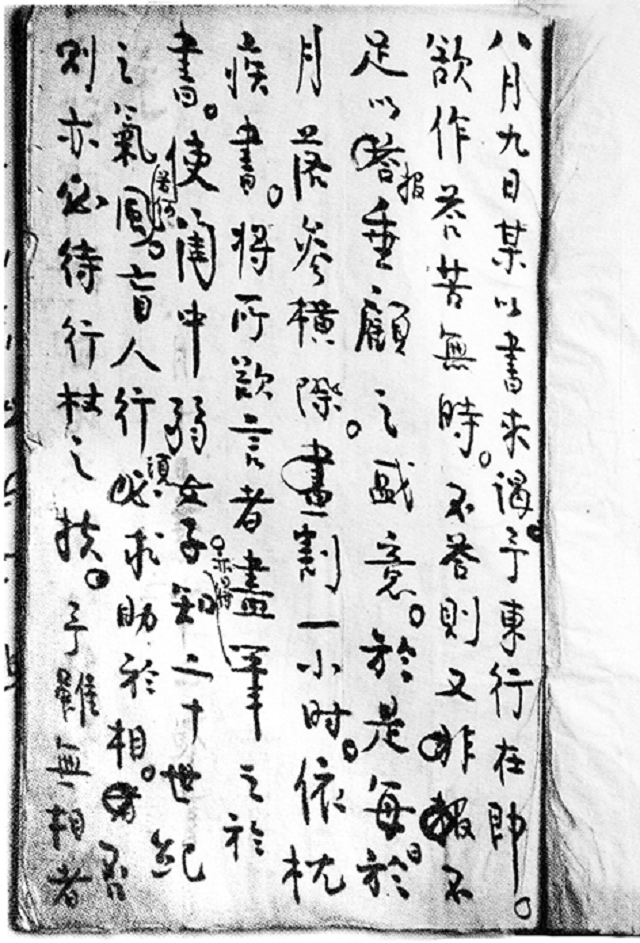 八月九日某以書来謁予東行在即。
欲作荅苦無時。不荅則又非報不
足以荅報垂顧之盛意。於是每日於
月落参横際。畫割一小时。依枕
疾書。将所欲言者盡筆之於
書。使閨中弱女子亦得知二十世紀
之氣風若何。盲人行必須求助於相。者否
则亦必待行杖之扶。予雖無相者